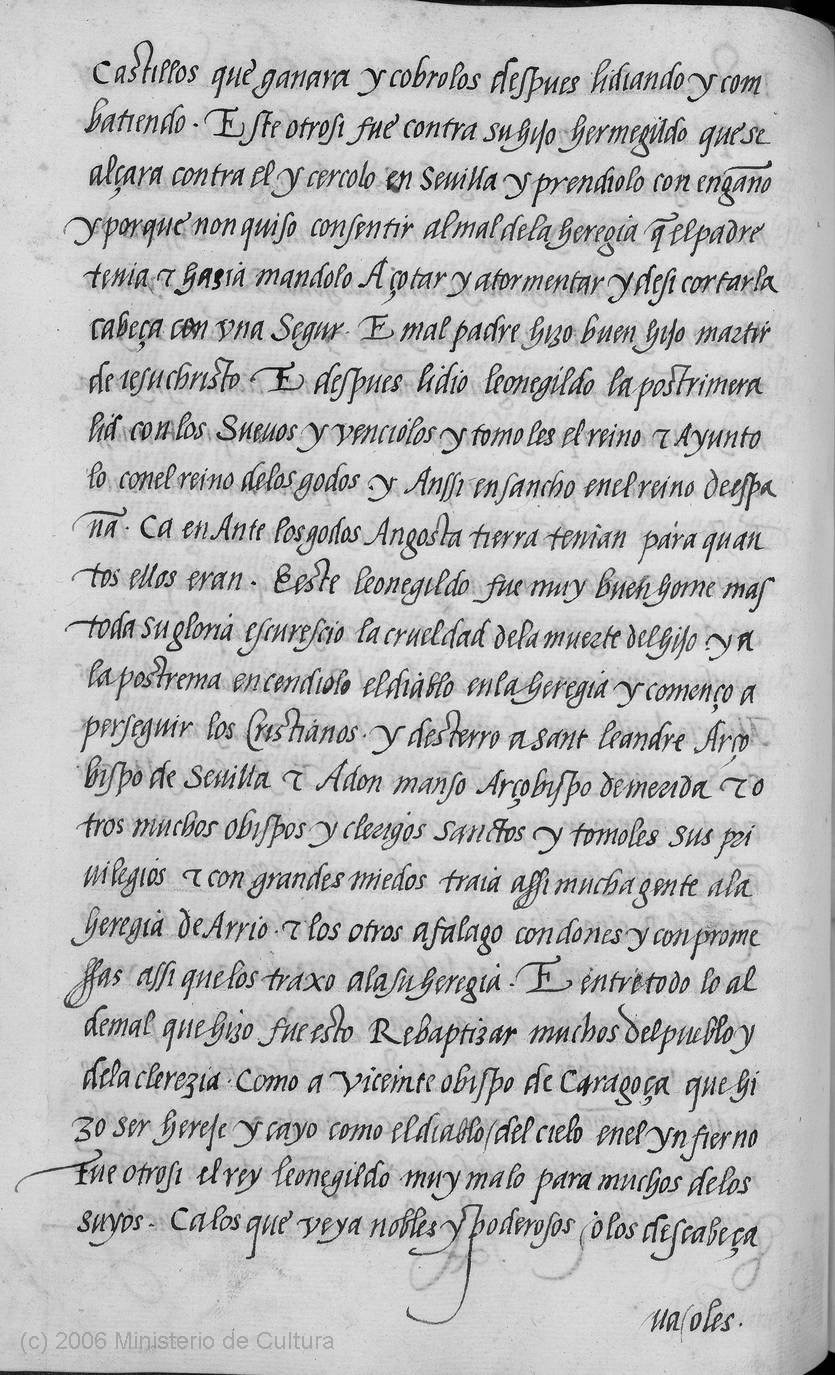 Castillos que ganara y cobrolos despues lidiando y com
batiendo. Este otrosi fue contra su hijo hermegildo que se
alçara contra el y cercolo en Sevilla y prendiolo con engaño
y porque non quiso consentir al mal de la heregia q̃ el padre
tenia ⁊ hasia mandolo Açotar y atormentar y desi cortar la
cabeça con vna Segur. E mal padre hizo buen hijo martir
de iesuchristo. E despues lidio leonegildo la postrimera
lid con los Sueuos y venciolos y tomoles el reino ⁊ Ayunto
lo con el reino delos godos y Anssi ensancho enel reino de espa
ña. Ca en Ante los godos Angosta tierra tenian para quan
tos ellos eran. E este leonegildo fue muy buen home mas
toda su gloria escurescio la crueldad dela muerte del hijo y a
la postrema encendiolo el diablo en la heregia y començo a
perseguir los Cristianos. y desterro a sant leandre Arço
bispo de Sevilla ⁊ A don manso Arçobispo de merida ⁊ o
tros muchos obispos y clerigos sanctos y tomoles sus pri
uilegios ⁊ con grandes miedos traia assi mucha gente a la
heregia de Arrio. ⁊ los otros afalago con dones y con prome
ssas assi que los traxo a la su heregia. E entre todo lo al
de mal que hizo fue esto Rebaptizar muchos del pueblo y
dela clerezia. Como a Viceinte obispo de Caragoça que hi
zo ser hereje y cayo como el diablo del cielo enel ynfierno
Fue otrosi el rey leonegildo muy malo para muchos delos
suyos. Ca los que veya nobles y poderosos o los descabeça
ua o les.
(c) 2006 Ministerio de Cultura